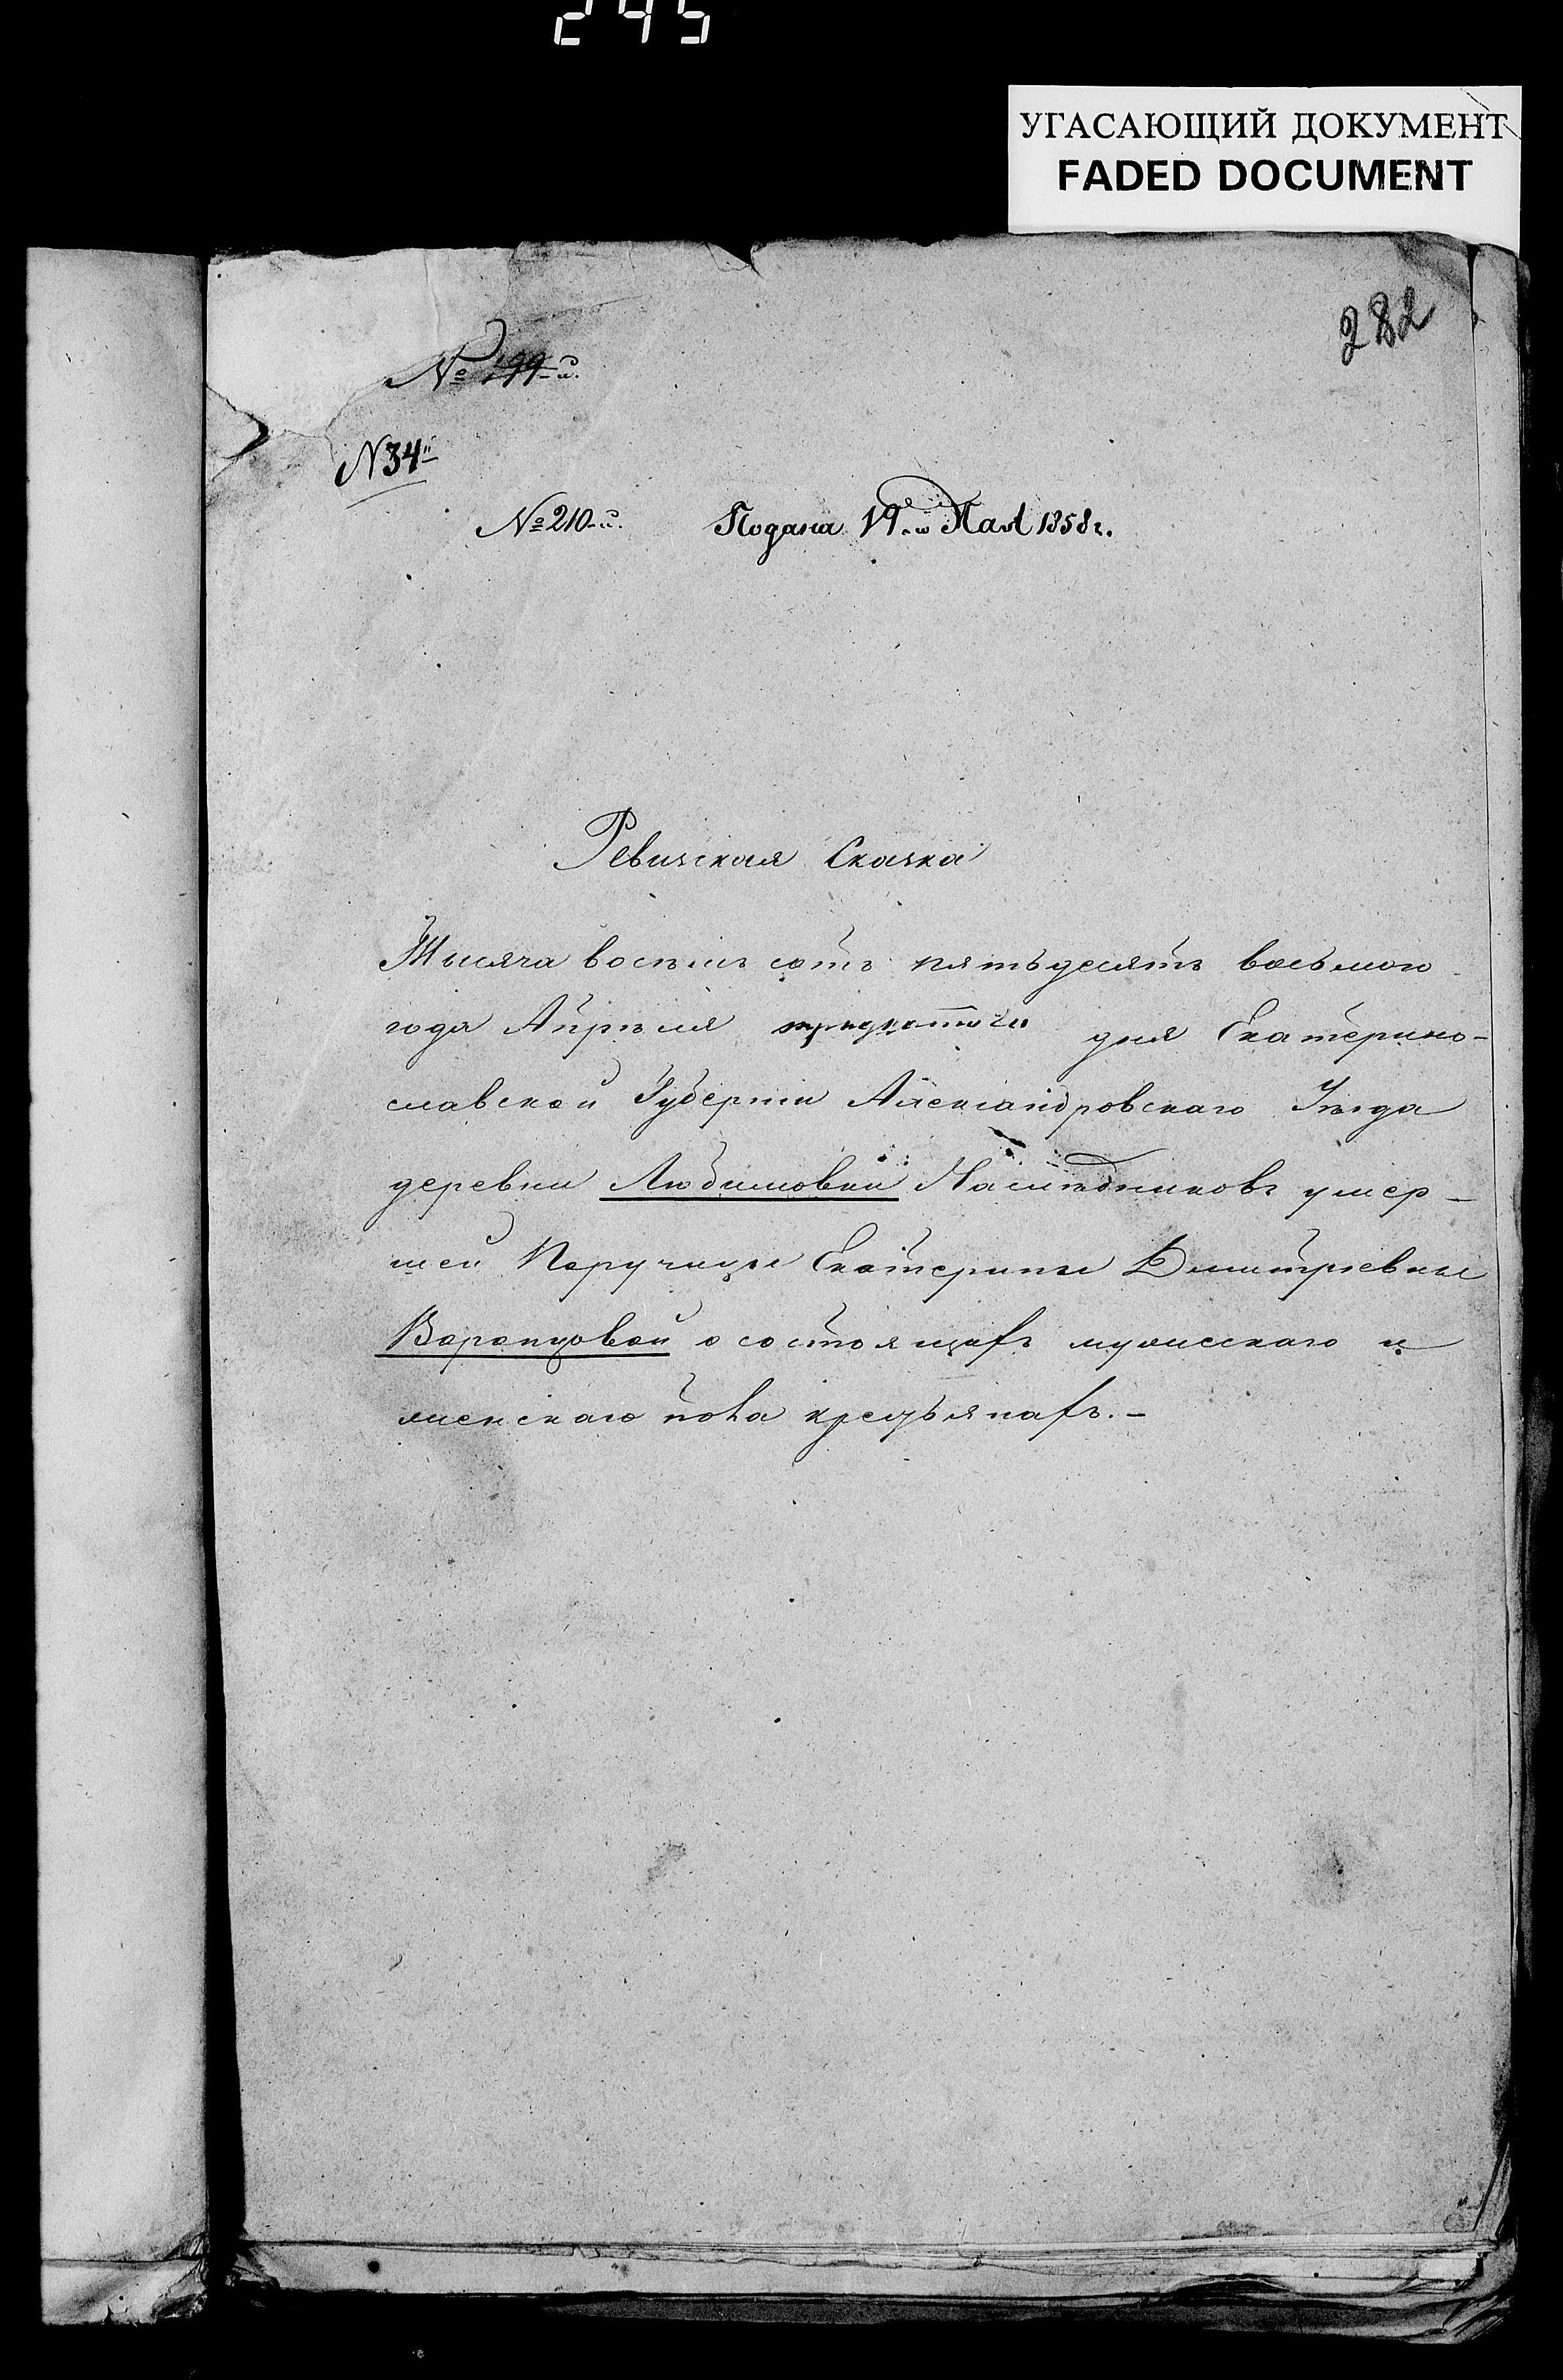 245
УГАСАЮЩИЙ ДОКУМЕНТ
FADED DOCUMENT
282
№ 199-й.
N34й
№ 210-й. Подана 19-го Мая 1858 г.
Ревизская Сказка
Тысяча восемь сотъ пятьдесятъ восьмого
года Апреля тридцатого дня Екатерино-
славской Губернии Александровскаго Уезда
деревни Любимовки Наследниковъ умер-
шей Поручицы Екатерины Дмитриевны
Воронцовой о состоящихъ мужескаго и
женскаго пола крестьянахъ.-